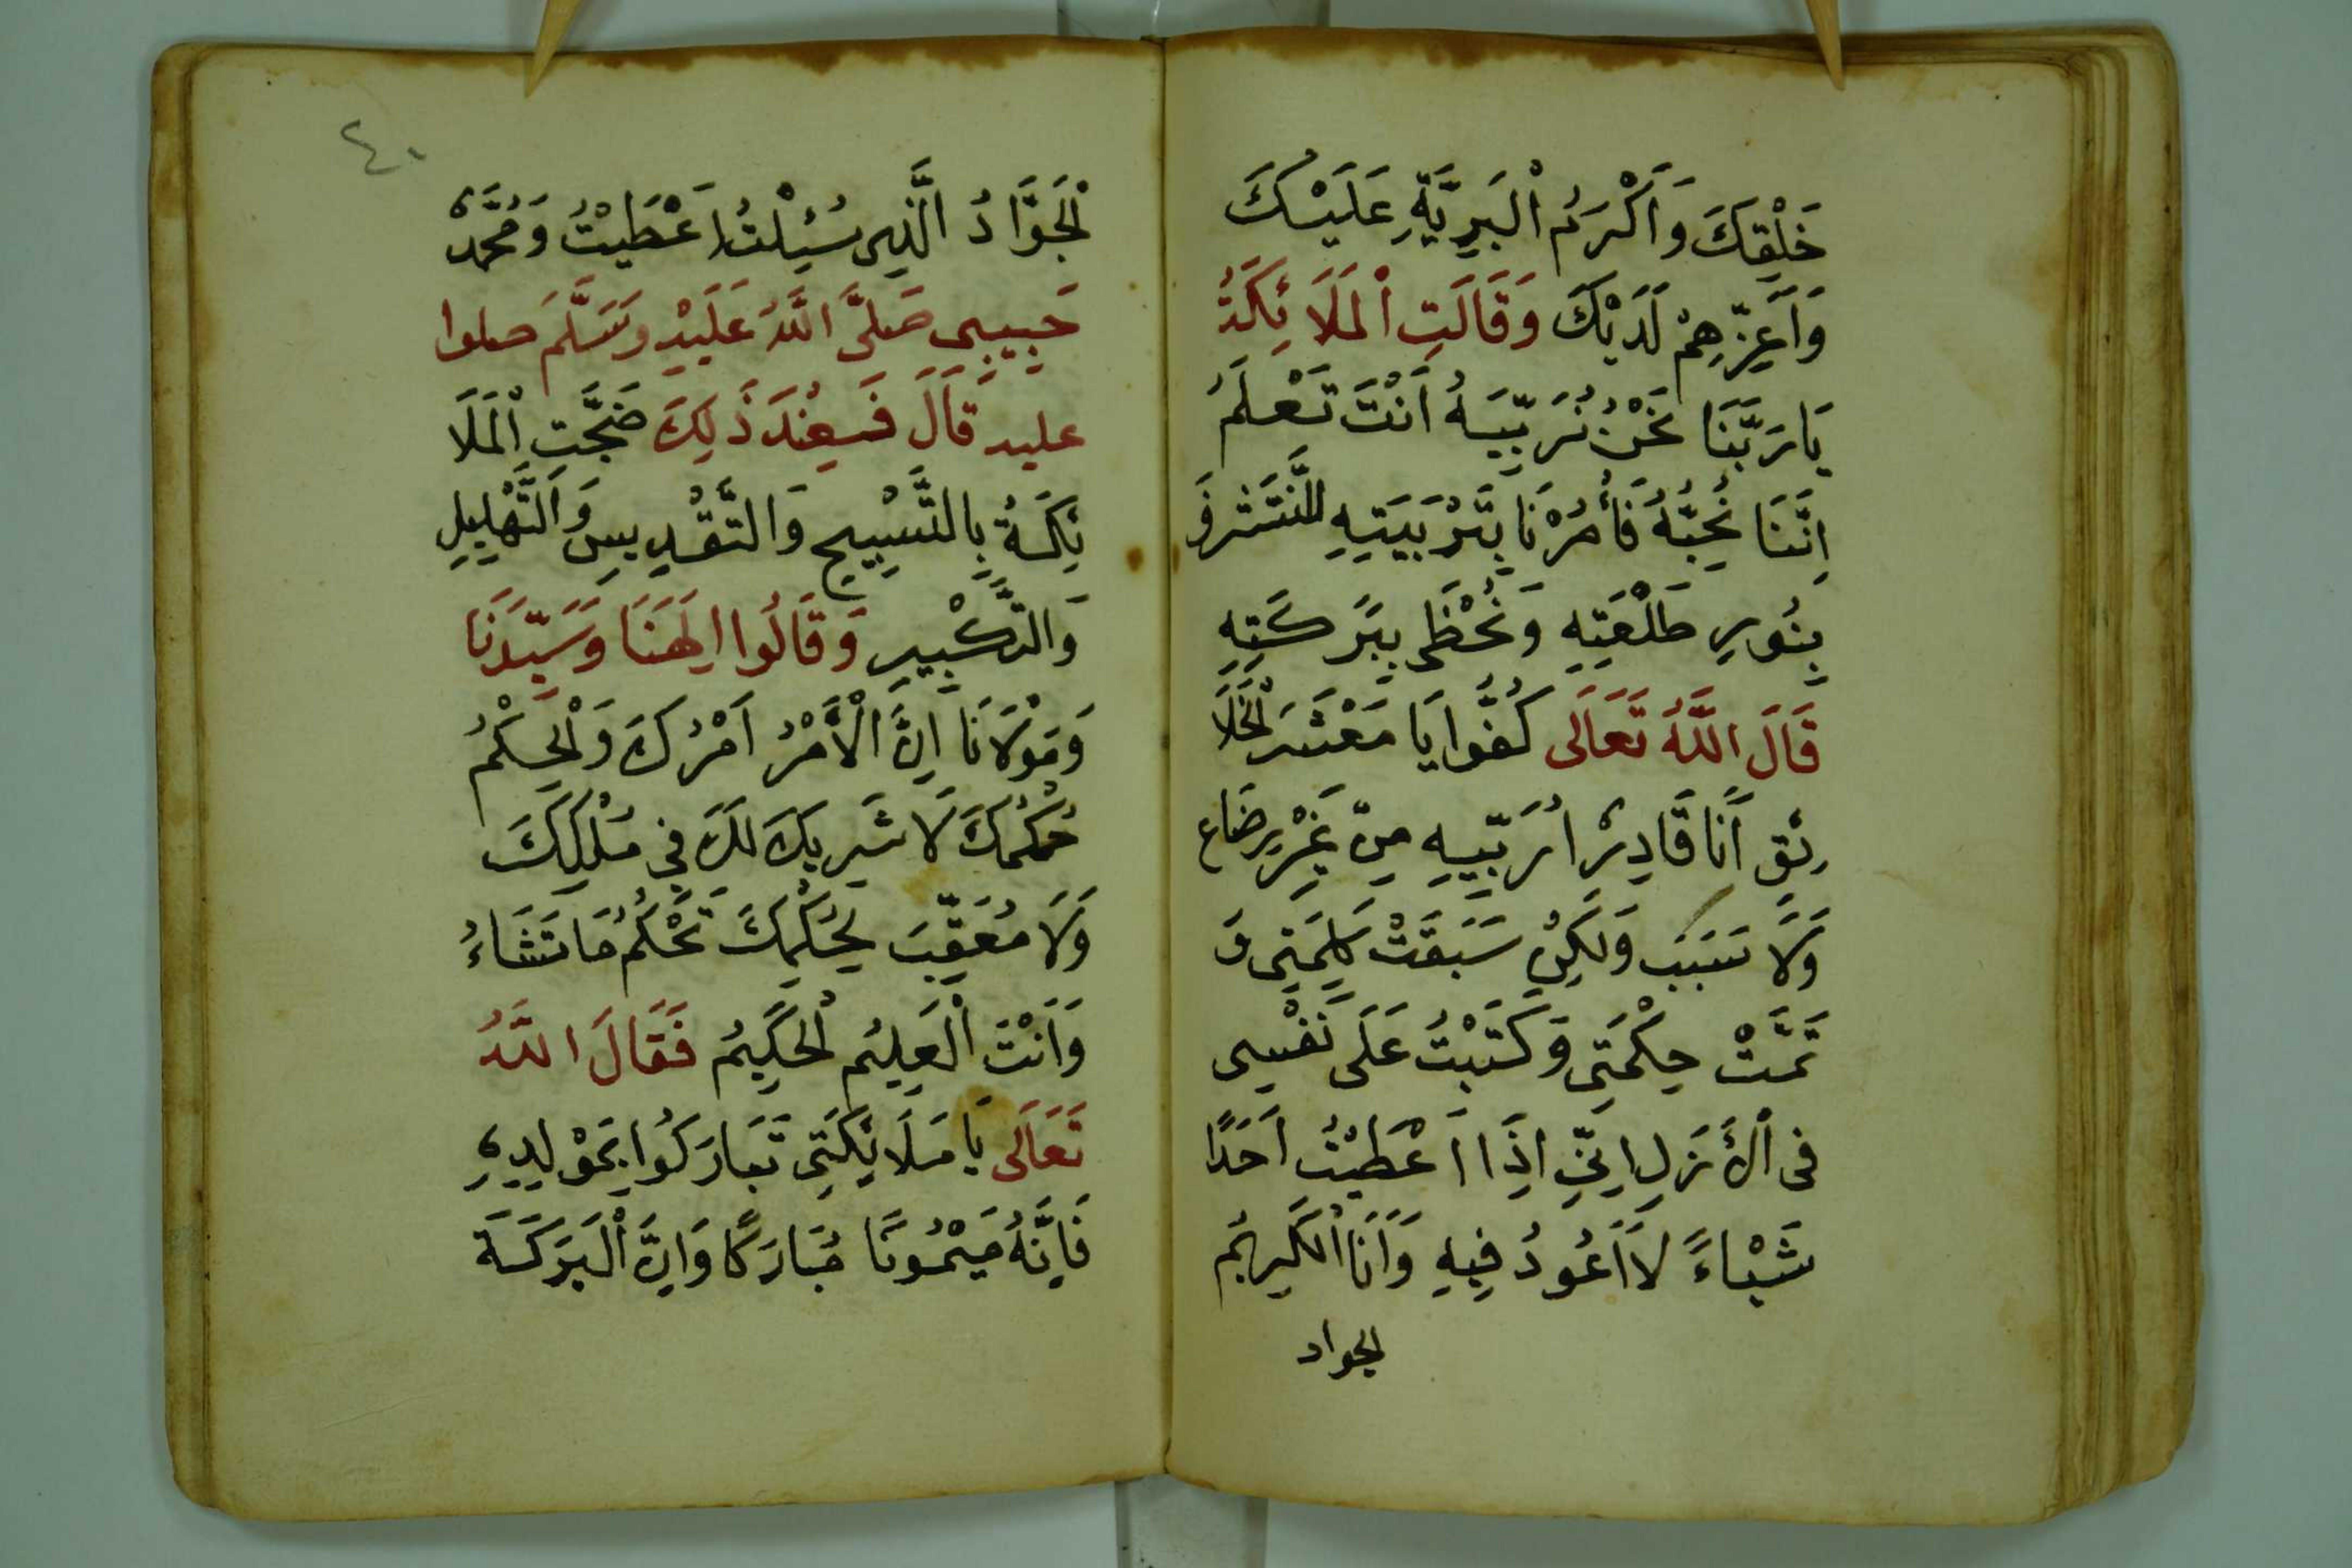 خَلْقِكَ وَاَكْرَمُ اْلبَرِيَّةِ عَلَيْكَ
وَاَعِزِّهِمْ لَدَيْكَ وَقَالَتِ اْلمَلَا ئِكَةُ
يَارَبَّنَا نَحْنُ نُرَبِّيَهُ اَنْتَ تَعْلَمُ
اِنَّنَا نُحِبُّهُ فَأْمُرْنَا بِتَرْبَيَتِهِ لِنَتَشَرَّفَ
بِنُورِ طَلْعَتِهِ وَنُحْظَى بِبَرَكَتِهِ
قَالَ اللَّهُ تَعَالَى كُفُّوا يَا مَعْشَرَ اْلخَلَا
ئِقِ اَنَا قَادِرٌ اُرَبِّيهِ مِنْ غَيْرِ رِضَاعٍ
وَلَا سَبَبٍ وَلَكِنْ سَبَقَتْ كَلِمَتِى وَ
تَمَّتْ حِكْمَتِى وَكَتَبْتُ عَلَى نَفْسِى
فى اْلأَزَلِ اِنِّى اِذَا اَعْطَيْتُ اَحَدًا
شَيْاءً لَا اَعُودُ فِيهِ وَاَنَا اْلكَرِيمُ
الجواد
٤٠
اْلجَوَّادُ الَّذِى سُئِلْتُ اَعْطَيْتُ وَمُحَمَّدٌ
حَبِيبِى صَلَّى اللَّهُ عَلَيْهِ وَسَلَّمَ صلوا
عليه قَالَ فَعِنْدَ ذَلِكَ ضَجَّتِ اْلمَلَا
ئِكَةُ بِالتَّسْبِيحِ وَالتَّقْدِيسِ وَالتَّهْلِيلِ
وَالتَّكْبِيرِ وَقَالُوا اِلَهَنَا وَسَيِّدَنَا
وَمَوْلَانَا اِنَّ الْأَمْرُ اَمْرُكَ وَاْلحِكْمُ
حُكْمُكَ لَا شَرِيكَ لَكَ فِى مُلْكِكَ
وَلَا مُعَقِّبَ لِحُكْمِكَ تَحْكُمُ مَا تَشَاءُ
وَاَنْتَ اْلعَلِيُم اْلحَكِيمُ فَقَالَ اللَّهُ
تَعَالَى يَا مَلَائِكَتِى تَبَارَكُوا بِمَوْلِدِهِ
فَاِنَّهُ مَيْمُونًا مُبَارَكًا وَاِنَّ اْلبَرَكَةَ